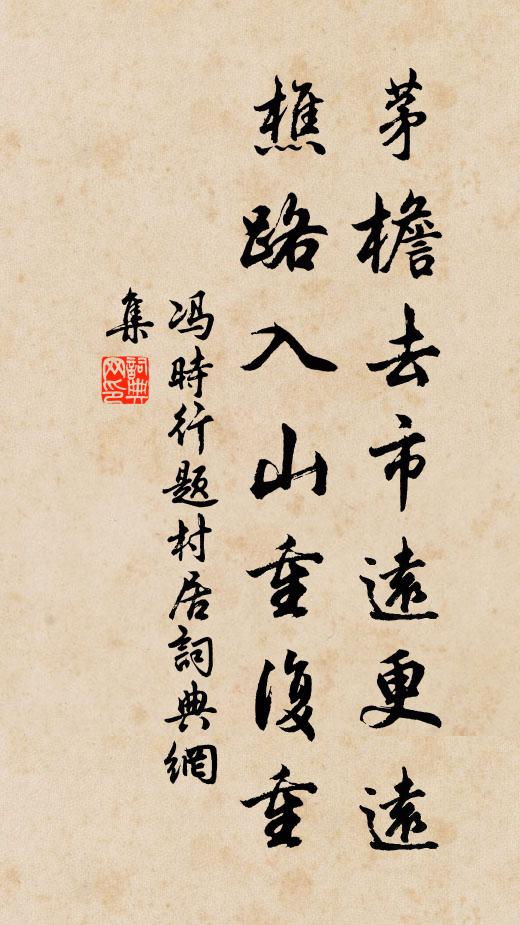 茅檐去市遠更遠
樵路入山重復重
冯時行题村居詞典網
集
詞典网印